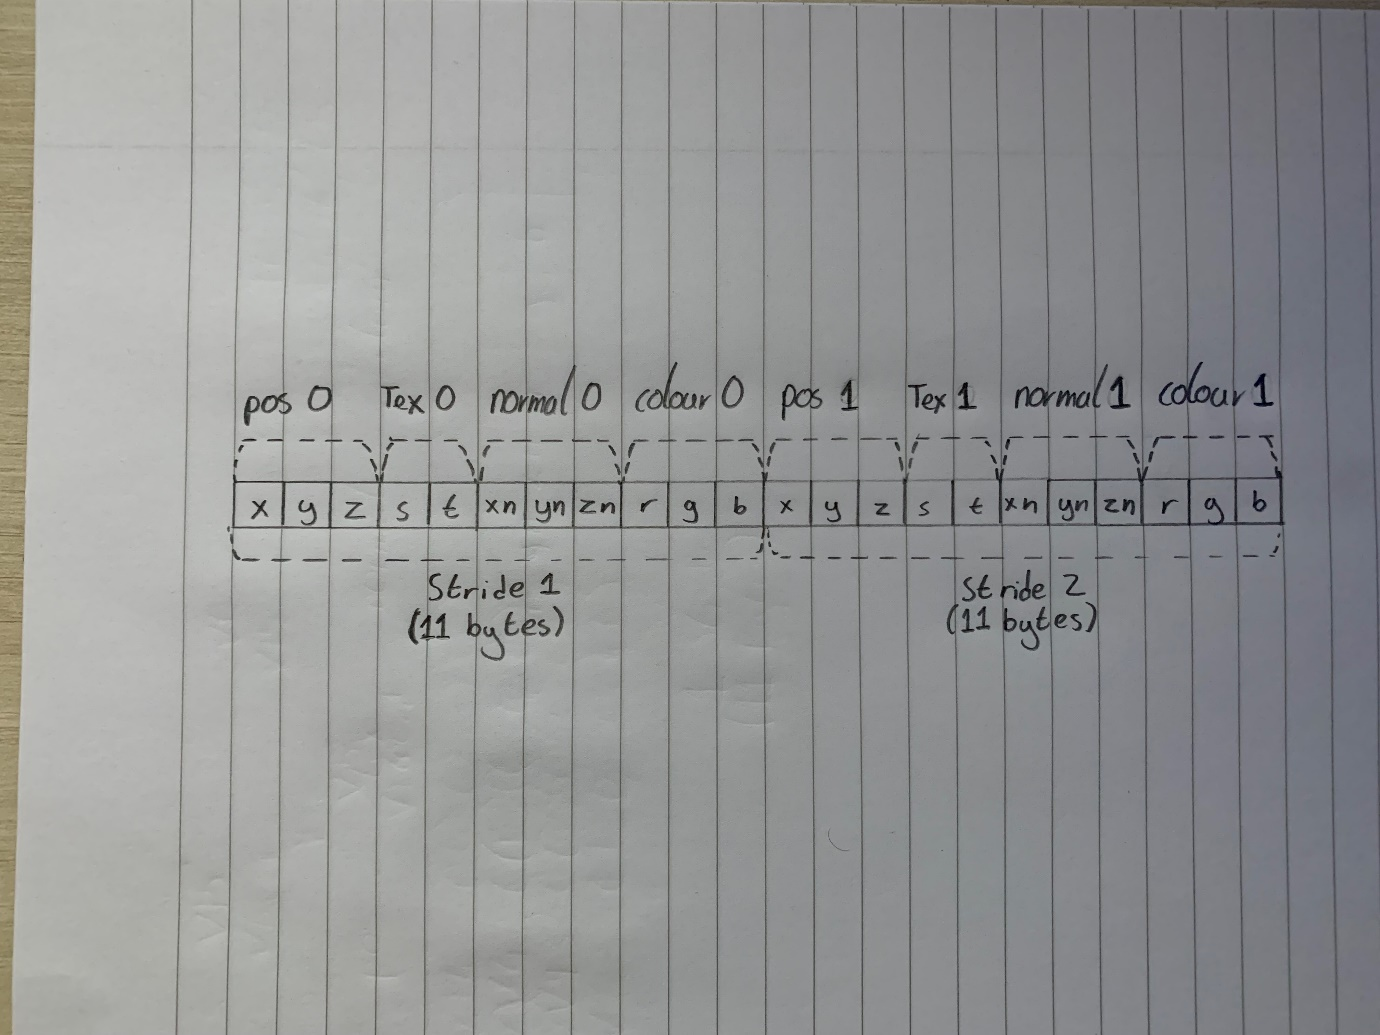 pos 0 Tex 0 normal 0 colour 0 pos 1 Tex 1 normal 1 colour 1
x y z s t xn yn zn r g b x y z s t xn yn zn r g b
Stride 1 Stride 2
(11 bytes) (11 bytes)